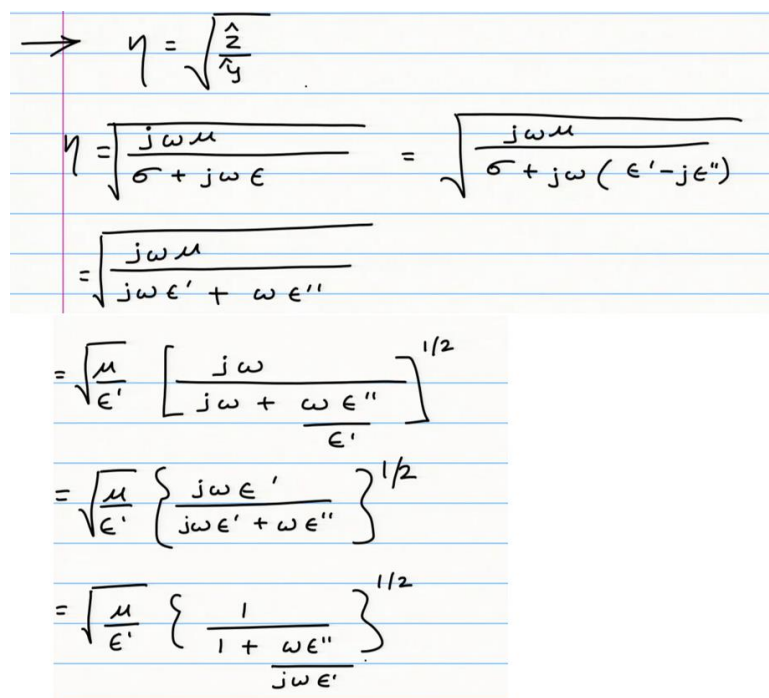 → η = √(ẑ/ŷ)
η = √(jωμ / (σ + jωϵ)) = √(jωμ / (σ + jω(ϵ' - jϵ'')))
= √(jωμ / (jωϵ' + ωϵ''))
= √(μ/ϵ') [jω / (jω + ωϵ''/ϵ')]^1/2
= √(μ/ϵ') {jωϵ' / (jωϵ' + ωϵ'')}^1/2
= √(μ/ϵ') {1 / (1 + ωϵ''/jωϵ')}^1/2